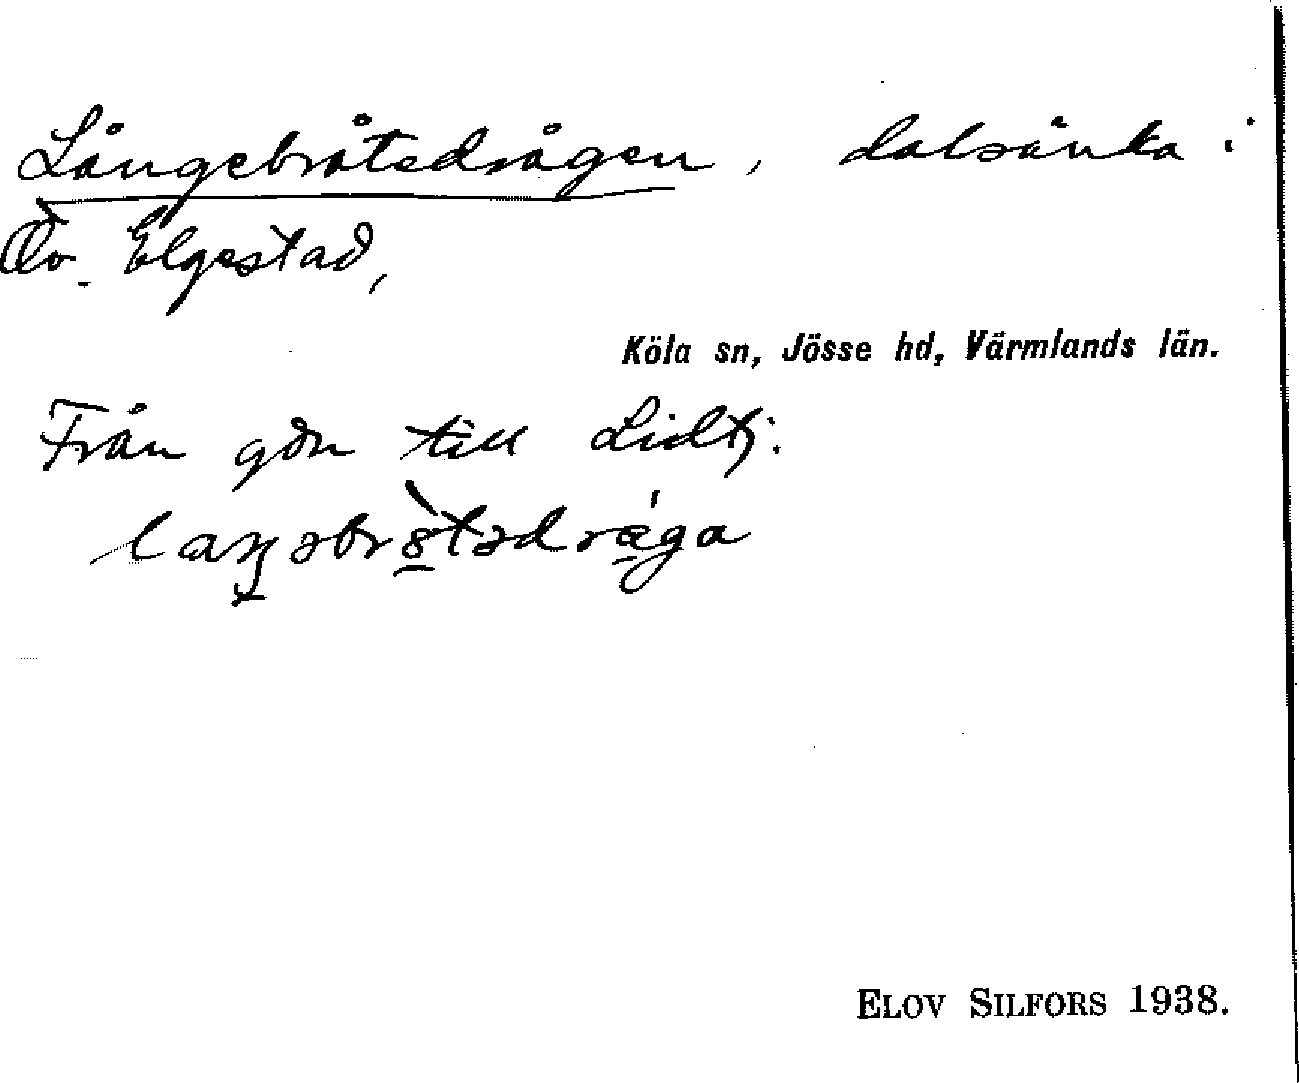 Långebråtedrågen, dalsänka i
Öv. Elgestad,
Köla sn, Jösse hd, Värmlands län.
Från gdn till Lidtj.
laŋəbrò̱tədrá̱ga
ELOV SILFORS 1938.